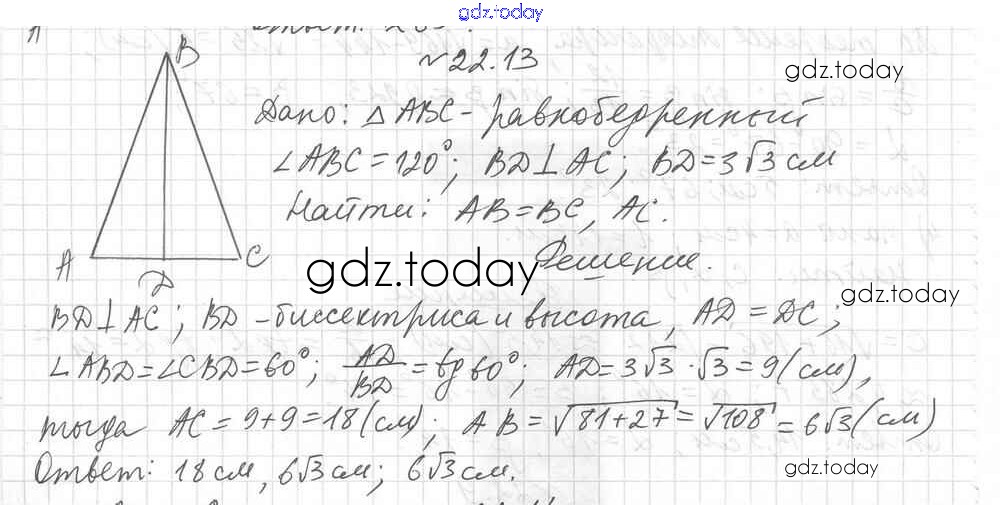 gdz.today
№22.13
gdz.today
Дано: △ABC - равнобедренный
∠ABC = 120°; BD⊥AC; BD = 3√3 см
Найти: AB = BC, AC.
B
A
C
D
Решение.
gdz.today
gdz.today
BD⊥AC; BD - биссектриса и высота, AD = DC;
∠ABD = ∠CBD = 60°; AD/BD = tg 60°; AD = 3√3 · √3 = 9 (см),
тогда AC = 9 + 9 = 18 (см); AB = √81 + 27 = √108 = 6√3 (см)
Ответ: 18 см, 6√3 см; 6√3 см.
gdz.today